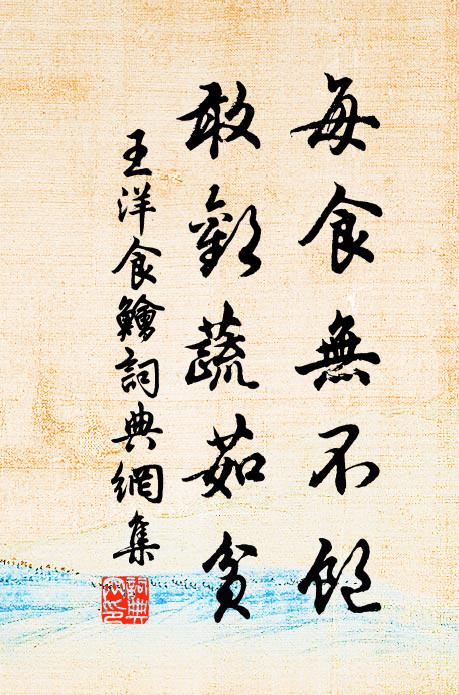 每食無不飽
敢歎蔬茹貧
王洋食鱠詞典網集